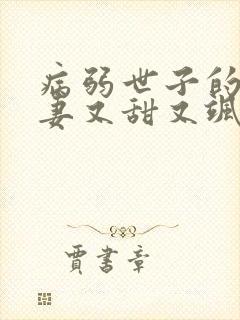 病弱世子的
妻又甜又飒
贾书章